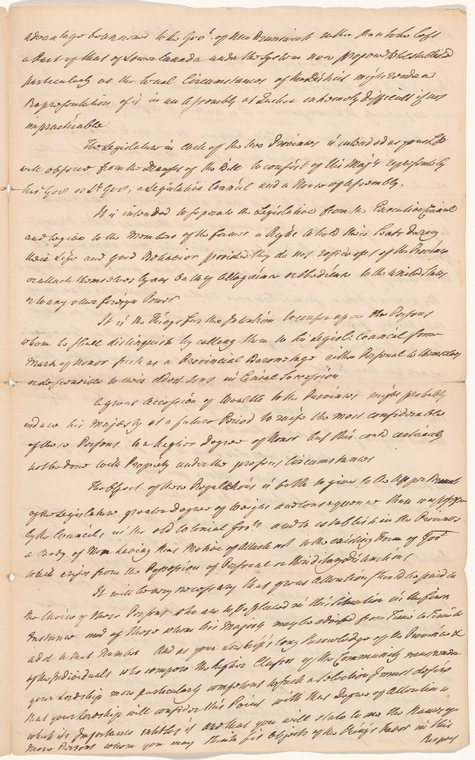 advantage be annexed to the Gov.t of New Brunswick rather than to be left
a Part of that of Lower Canada under the System now proposed to be established
particularly as the local Circumstances of the District might render a
Representation of it in an Assembly at Quebec extremely difficult if not
impracticable
The Legislature in each of the two Provinces is intended as your Lds.
will observe from the Draught of the Bill to consist of His Maj.ty represented by
his Gov.r or Lt Gov.r, a Legislative Council and a House of Assembly.
It is intended to separate the Legislative from the Executive Council
and to give to the Members of the former a Right to hold their Seats during
their Life and good Behavior provided they do not reside out of the Province
or attach themselves by any Oath of Allegiance or Obedience to the United States
or to any other foreign Power
It is the King's further Intention to confer upon the Persons
whom he shall distinguish by calling them to his Legisl.e Council some
Mark of Honor such as a Provincial Baronetage either Personal to themselves
or descendible to their eldest Sons in lineal Succession
A great Accession of Wealth to the Provinces might probably
induce his Majesty at a future Period to raise the most considerable
of these Persons to a higher Degree of Honor but this could certainly
not be done with Propriety under the present Circumstances
The Object of these Regulations is both to give to the Upper Branch
of the Legislature a greater degree of Weight and Consequence than was possessed
by the Councils in the old Colonial Gov.ts and to establish in the Provinces
a Body of Men having that Motive of Attach.ment to the existing Form of Gov.t
which arises from the Possession of Personal or Hereditary Distinction.
It will be very necessary that great Attention should be paid to
the Choice of those Persons who are to be placed in this Situation in the first
Instance and of those whom his Majesty may be advised from Time to Time to
add to that Number And as your Lordship's long Knowledge of the Province &
of the Individuals who compose the higher Classes of the Community must render
your Lordship more particularly competent to such a selection I must desire
that your Lordship will consider this Point with that Degree of Attention
which its Importance entitles it and that you will state to me the Names of
those Persons whom you may think fit Objects of the King's Favor in this
Respect